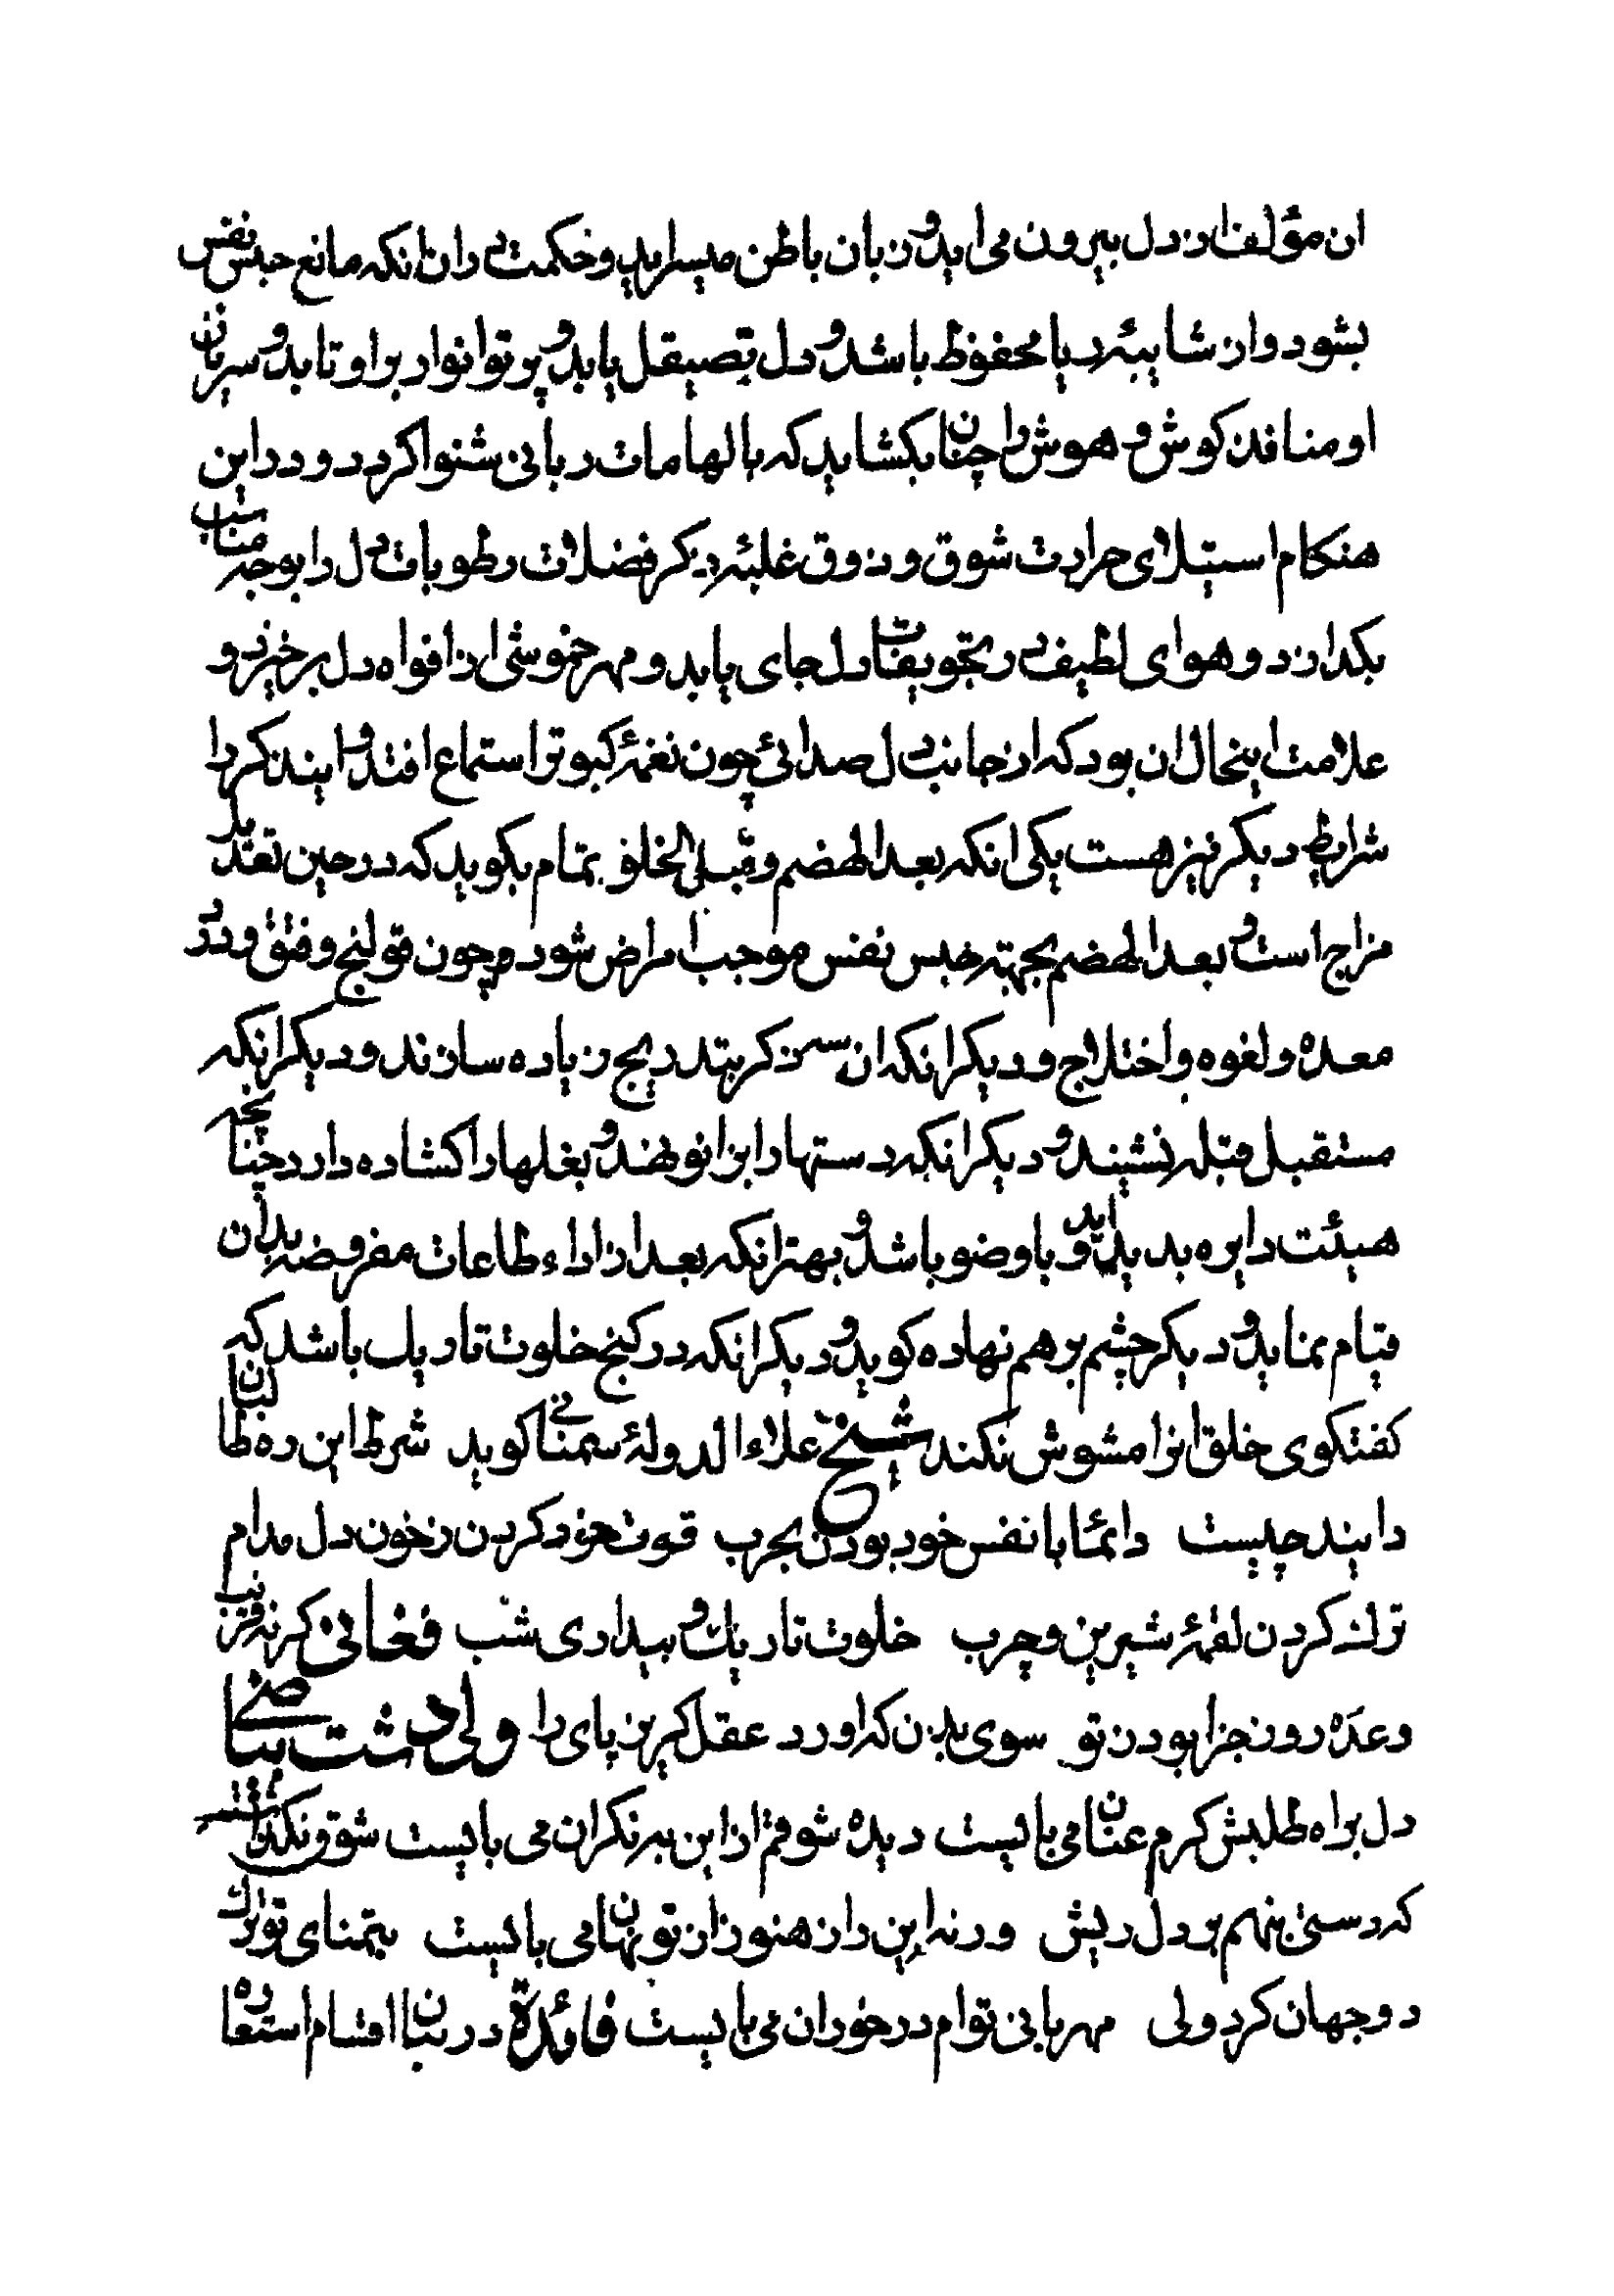 ان مؤلف از دل بیرون می اید و زبان باطن میسراید و حکمت در ان انکه مانع حبس نفس
بشود و از شایبهٔ ریا محفوظ باشد و دل تصیقل یابد و پرتو انوار بر او تابد و سریان
او منافذ کوش و هوش را چنان بکشاید که بالهامات ربانی شنوا کردد و در این
هنکام استیلای حرارت شوق و ذوق غلبهٔ دیکر فضلات رطوبات دل را بوجه مناسب
بکدازد و هوای لطیف در تجویفات دل جای یابد و مهر خموشی از افواه دل برخیزد و
علامت اینحال ان بود که از جانب دل صدائی چون نغمهٔ کبوتر استماع افتد و اینذکر را
شرایط دیکر نیز هست یکی انکه بعد الهضم و قبل الخلو بتمام بکوید که در حین تعتدیل
مزاج است و بعد الهضم بجهته حبس نفس موجب امراض شود همچون قولنج و فتق و درد
معده و لغوه و اختلاج و دیکر انکه ان سه ذکر بتدریج زیاده سازند و دیکر انکه
مستقبل قبله نشیند و دیکر انکه دستها را بزانو نهند و بغلها را کشاده دارد چنانچه
هیئت دایره بدید اید و باوضو باشد و بهتر انکه بعد از اداء طاعات مفروضه بدان
قیام نماید و دیکر چشم بر هم نهاده کوید و دیکر انکه در کنج خلوت تاریک باشد که
کفتکوی خلق انرا مشوش نکند شیخ علاء الدولهٔ سمنانی کوید شرط این ره طالبان
دانیند چیست دائما با نفس خود بودن بحرب قوت خود کردن زخون دل مدام
ترک کردن لقمهٔ شیرین و چرب خلوت تاریک و بیداری شب فغانی کر نه فریب
وعدهٔ روز جزا بودن تو سوی بدن که اورد عقل کریز پای را ولی دشت بیاضی
دل براه طلبش کرم عنان می بایست دیده شوقم از این به نکران می بایست شوق نکذاشت
که دستی بنهم بر دل ریش ورنه این راز هنوز از تو نهان می بایست بتمنای تو ترک
دو جهان کرد ولی مهربانی توام در خور ان می بایست فائدة در بیان اقسام استعاره